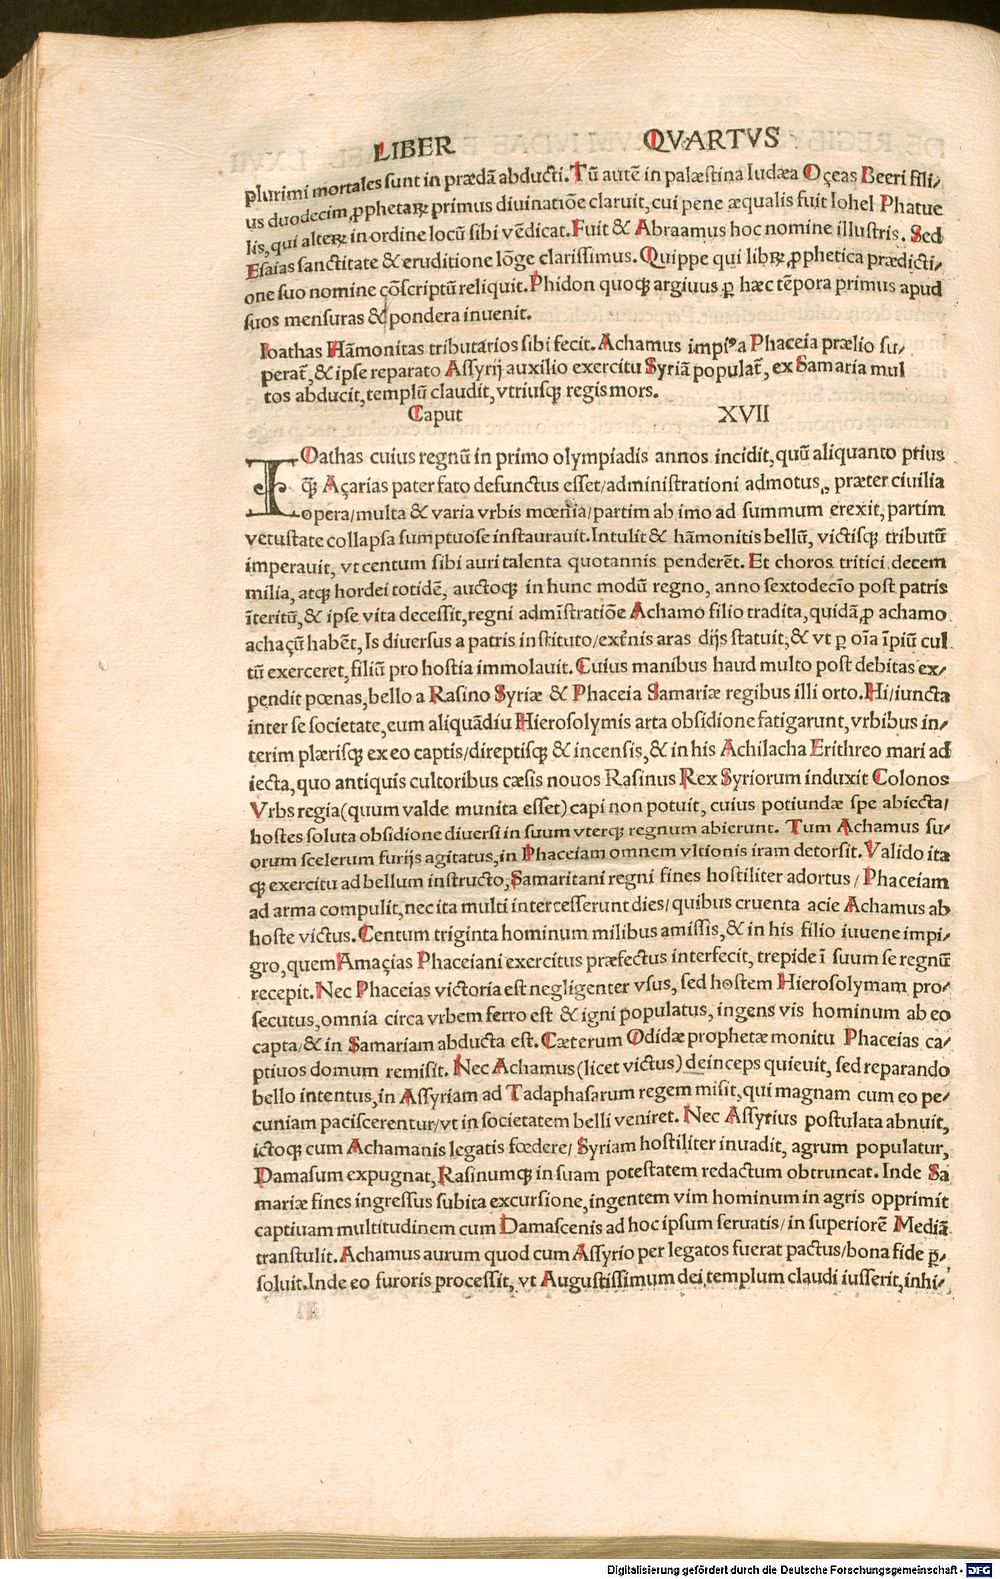 LIBER QVARTVS
plurimi mortales sunt in prædã abducti. Tũ autẽ in palæstina Iudæa Oçeas Beeri fili/
us duodecim ꝓphetaꝝ primus diuinatiõe claruit, cui pene æqualis fuit Iohel Phatue
lis, qui alteꝝ in ordine locũ sibi vẽdicat. Fuit & Abraamus hoc nomine illustris. Sed
Esaias sanctitate & eruditione lõge clarissimus. Quippe qui libꝝ ꝓphetica prædicti/
one suo nomine cõscriptũ reliquit. Phidon quoqꝫ argiuus ꝑ hæc tẽpora primus apud
suos mensuras & pondera inuenit.
Ioathas Hãmonitas tributarios sibi fecit. Achamus impiꝰ a Phaceia prælio su/
perat᷑, & ipse reparato Assyrij auxilio exercitu Syriã populat᷑, ex Samaria mul
tos abducit, templũ claudit, vtriusqꝫ regis mors.
Caput XVII
IOathas cuius regnũ in primo olympiadis annos incidit, quũ aliquanto prius
qꝫ̃ Açarias pater fato defunctus esset/administrationi admotus, præter ciuilia
opera/multa & varia vrbis mœnia/partim ab imo ad summum erexit, partim
vetustate collapsa sumptuose instaurauit. Intulit & hãmonitis bellũ, victisqꝫ tributũ
imperauit, vt centum sibi auri talenta quotannis penderẽt. Et choros tritici decem
milia, atqꝫ hordei totidẽ, auctoqꝫ in hunc modũ regno, anno sextodecĩo post patris
ĩteritũ, & ipse vita decessit, regni admĩstratiõe Achamo filio tradita, quidã ꝓ achamo
achaçũ habẽt, Is diuersus a patris instituto/ext᷑nis aras dijs statuit, & vt ꝑ oĩa ĩpiũ cul
tũ exerceret, filiũ pro hostia immolauit. Cuius manibus haud multo post debitas ex/
pendit pœnas, bello a Rasino Syriæ & Phaceia Samariæ regibus illi orto. Hi/iuncta
inter se societate, eum aliquãdiu Hierosolymis arta obsidione fatigarunt, vrbibus in/
terim plærisqꝫ ex eo captis/direptisqꝫ & incensis, & in his Achilacha Erithreo mari ad
iecta, quo antiquis cultoribus cæsis nouos Rasinus Rex Syriorum induxit Colonos
Vrbs regia (quum valde munita esset) capi non potuit, cuius potiundæ spe abiecta/
hostes soluta obsidione diuersi in suum vterqꝫ regnum abierunt. Tum Achamus su/
orum scelerum furijs agitatus, in Phaceiam omnem vltionis iram detorsit. Valido ita
qꝫ exercitu ad bellum instructo, Samaritani regni fines hostiliter adortus/Phaceiam
ad arma compulit, nec ita multi intercesserunt dies/quibus cruenta acie Achamus ab
hoste victus. Centum triginta hominum milibus amissis, & in his filio iuuene impi/
gro, quem Amaçias Phaceiani exercitus præfectus interfecit, trepide ĩ suum se regnũ
recepit. Nec Phaceias victoria est negligenter vsus, sed hostem Hierosolymam pro/
secutus, omnia circa vrbem ferro est & igni populatus, ingens vis hominum ab eo
capta/& in Samariam abducta est. Cæterum Odidæ prophetæ monitu Phaceias ca/
ptiuos domum remisit. Nec Achamus (licet victus) deinceps quieuit, sed reparando
bello intentus, in Assyriam ad Tadaphasarum regem misit, qui magnam cum eo pe/
cuniam paciscerentur/vt in societatem belli veniret. Nec Assyrius postulata abnuit,
ictoqꝫ cum Achamanis legatis fœdere/Syriam hostiliter inuadit, agrum populatur,
Damasum expugnat, Rasinumqꝫ in suam potestatem redactum obtruncat. Inde Sa
mariæ fines ingressus subita excursione, ingentem vim hominum in agris opprimit
captiuam multitudinem cum Damascenis ad hoc ipsum seruatis/in superiorẽ Mediã
transtulit. Achamus aurum quod cum Assyrio per legatos fuerat pactus/bona fide p̱/
soluit. Inde eo furoris processit, vt Augustissimum dei templum claudi iusserit, inhi/
Digitalisierung gefördert durch die Deutsche Forschungsgemeinschaft - DFG